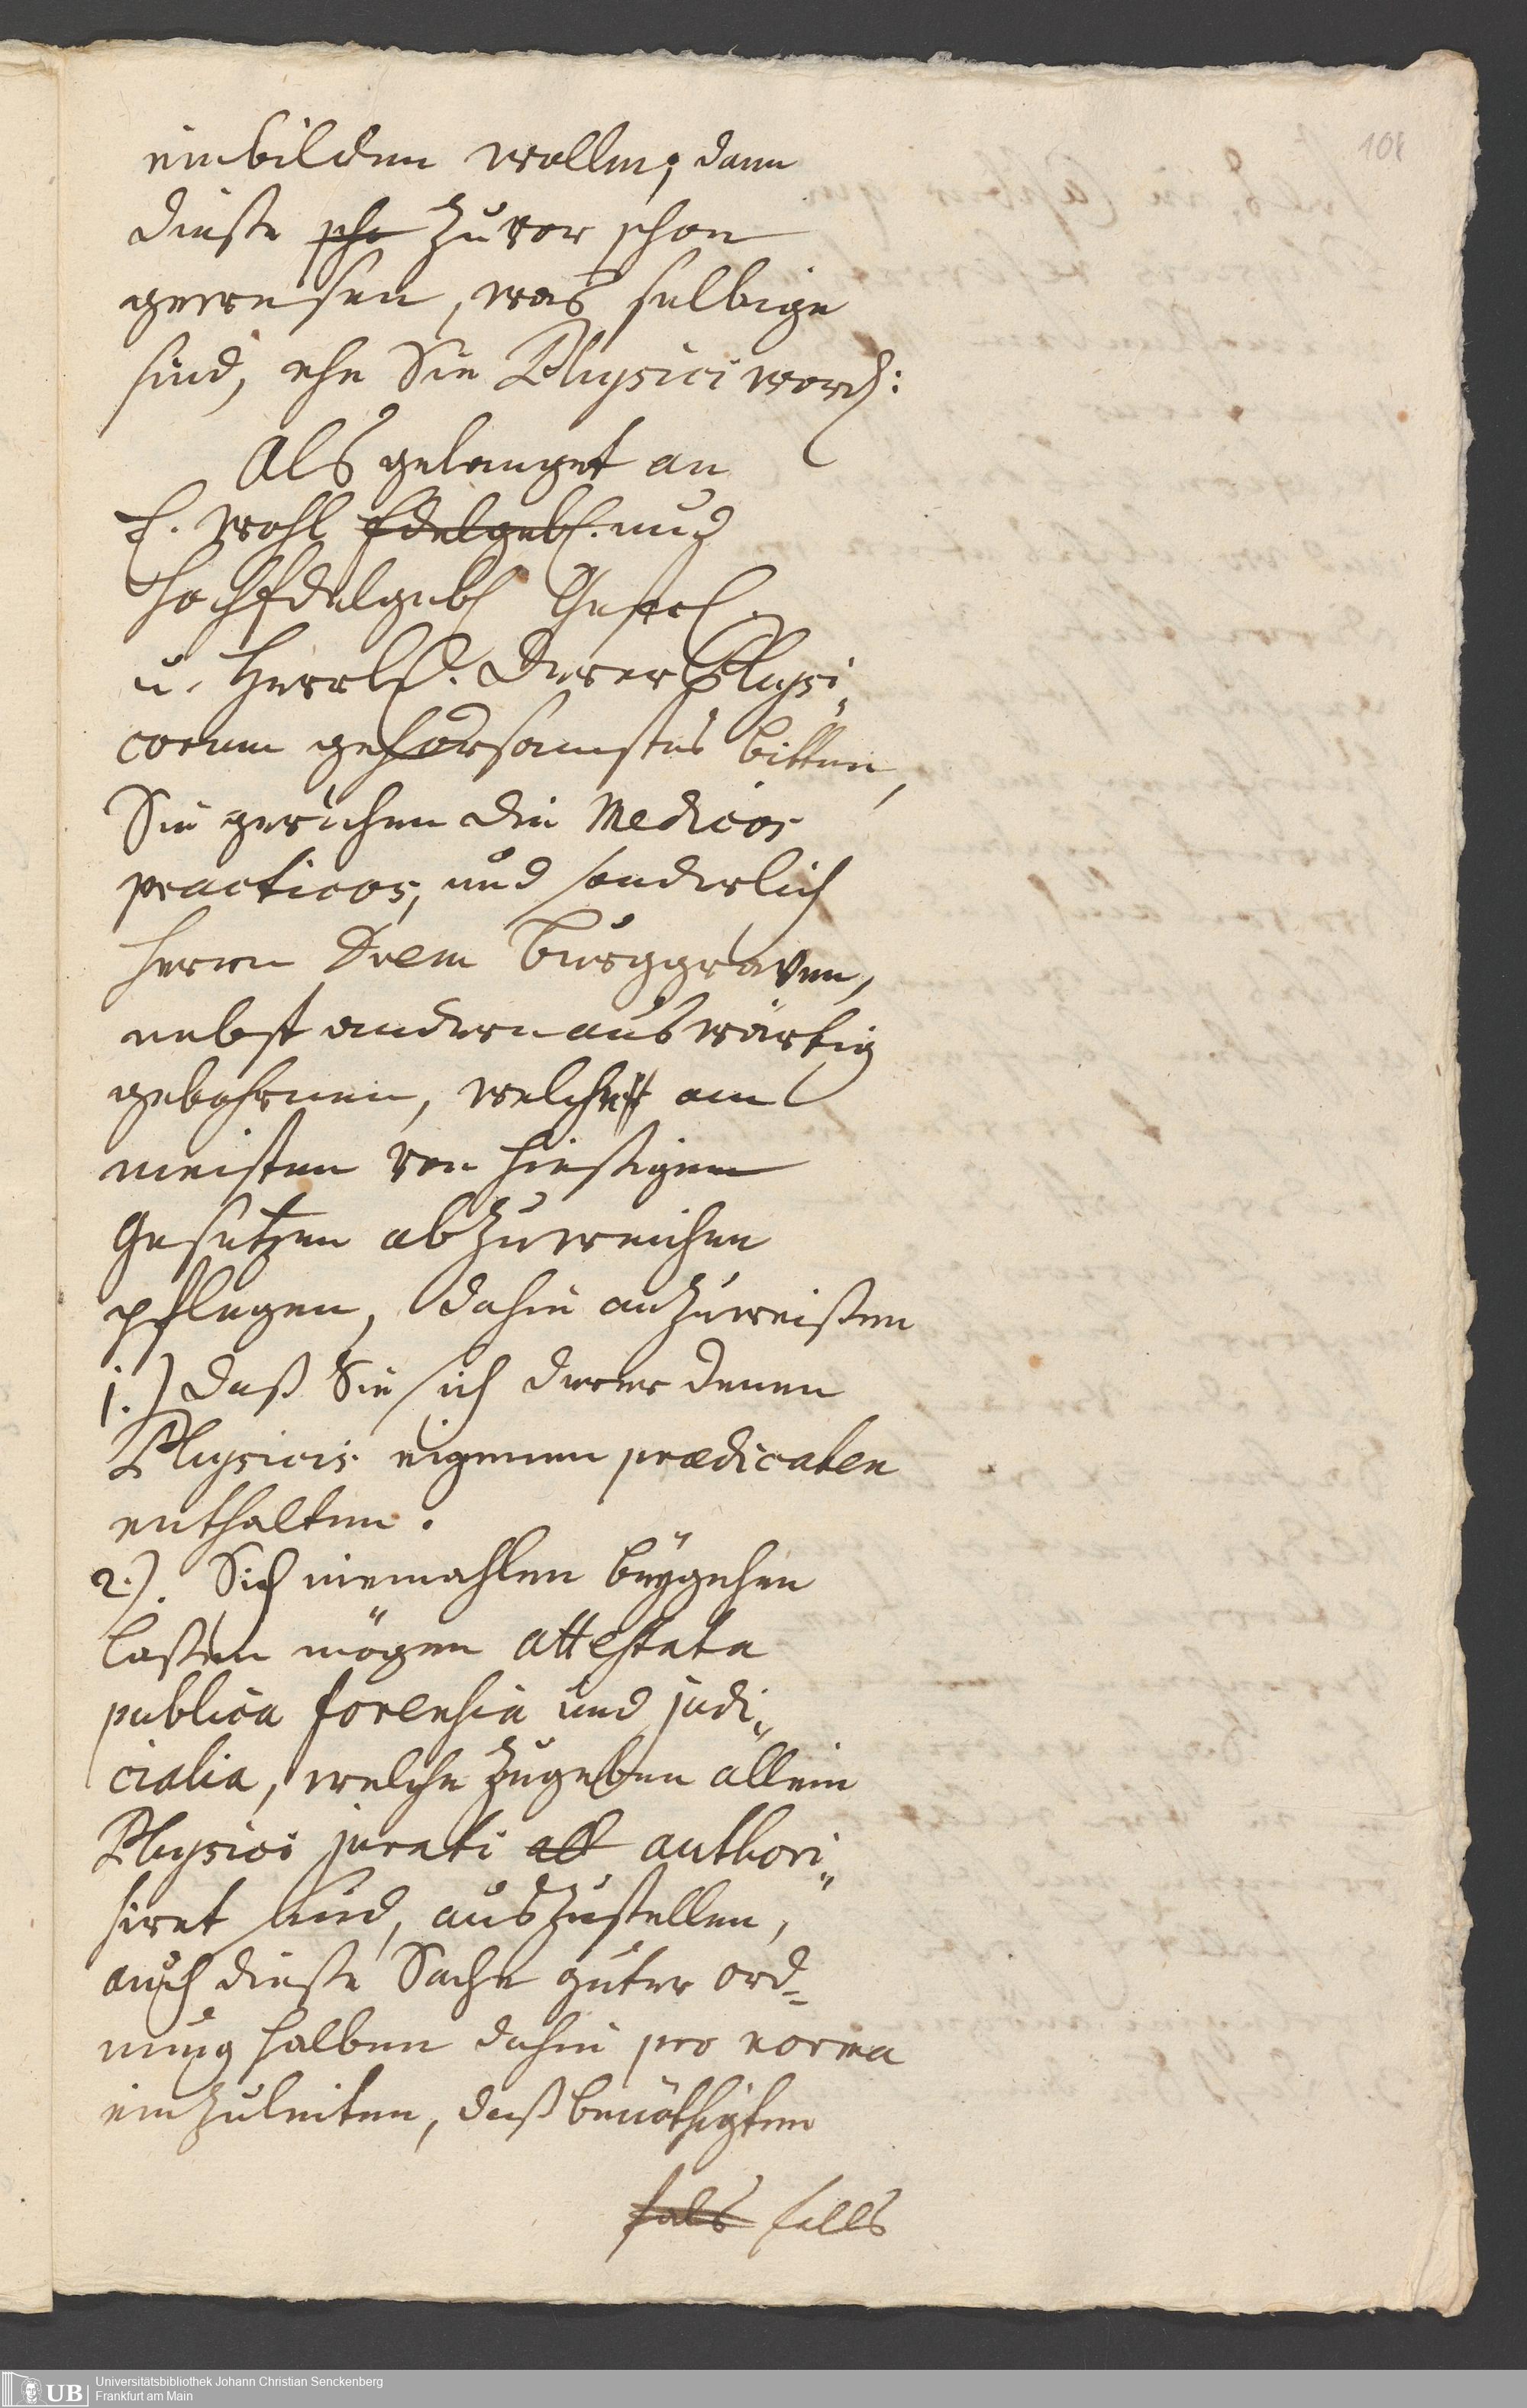 108
einbilden wollen; dann
dieße scho zuvor schon
geweesen, was selbige
sind, ehe Sie Physici word:
Als gelanget an
E. Wohl Edelgeb. und
HochEdelgeb Gestr.
u. Herrl. derer Physi„
corum gehorsamstes bitten,
Sie geruhen die Medicos
practicos, und sonderlich
Herrn Drem Burggraven,
nebst andern auswärtig
gebohrnen, welche am
meisten von hießigen
Gesetzen abzuweichen
pflegen, dahin anzuweißen
1.) daß Sie sich derer denen
Physicis eigenen praedicaten
enthalten.
2.). Sich niemahlen beÿgehen
laßen mögen attestata
publica forensia und judi„
cialia, welche zugeben allein
Physici jurati all authori„
siret sind, auszustellen,
auch dieße Sache guter ord=
nung halben dahin pro norma
einzuleiten, daß benöthigten
fals falls
UB Universitätsbibliothek Johann Christian Senckenberg
Frankfurt am Main